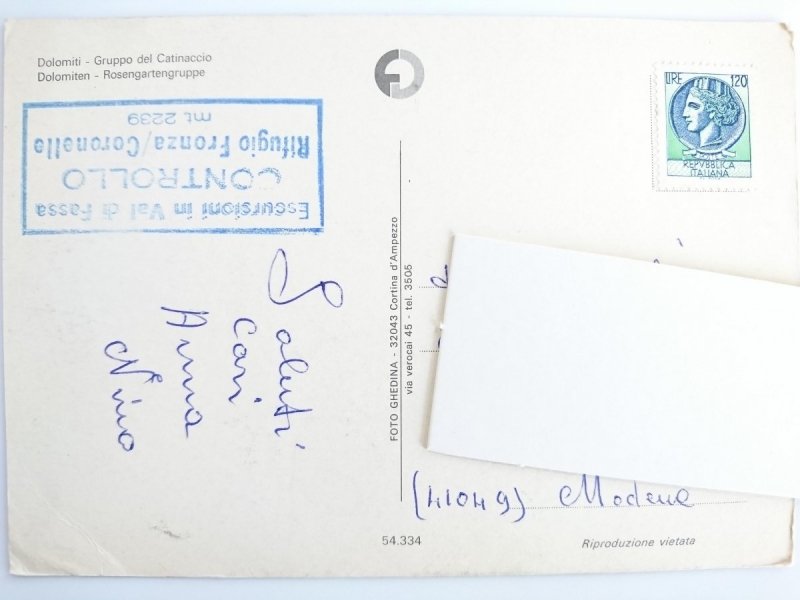 Dolomiti - Gruppo del Catinaccio
Dolomiten - Rosengartengruppe
Escursioni in Val di Fassa
CONTROLLO
Rifugio Fronza/Coronelle
mt. 2239
LIRE 120
REPVBBLICA
ITALIANA
Saluti
Cari
Anna
Nino
FOTO GHEDINA - 32043 Cortina d'Ampezzo
via verocai 45 - tel. 3505
(41049) Modena
54.334
Riproduzione vietata